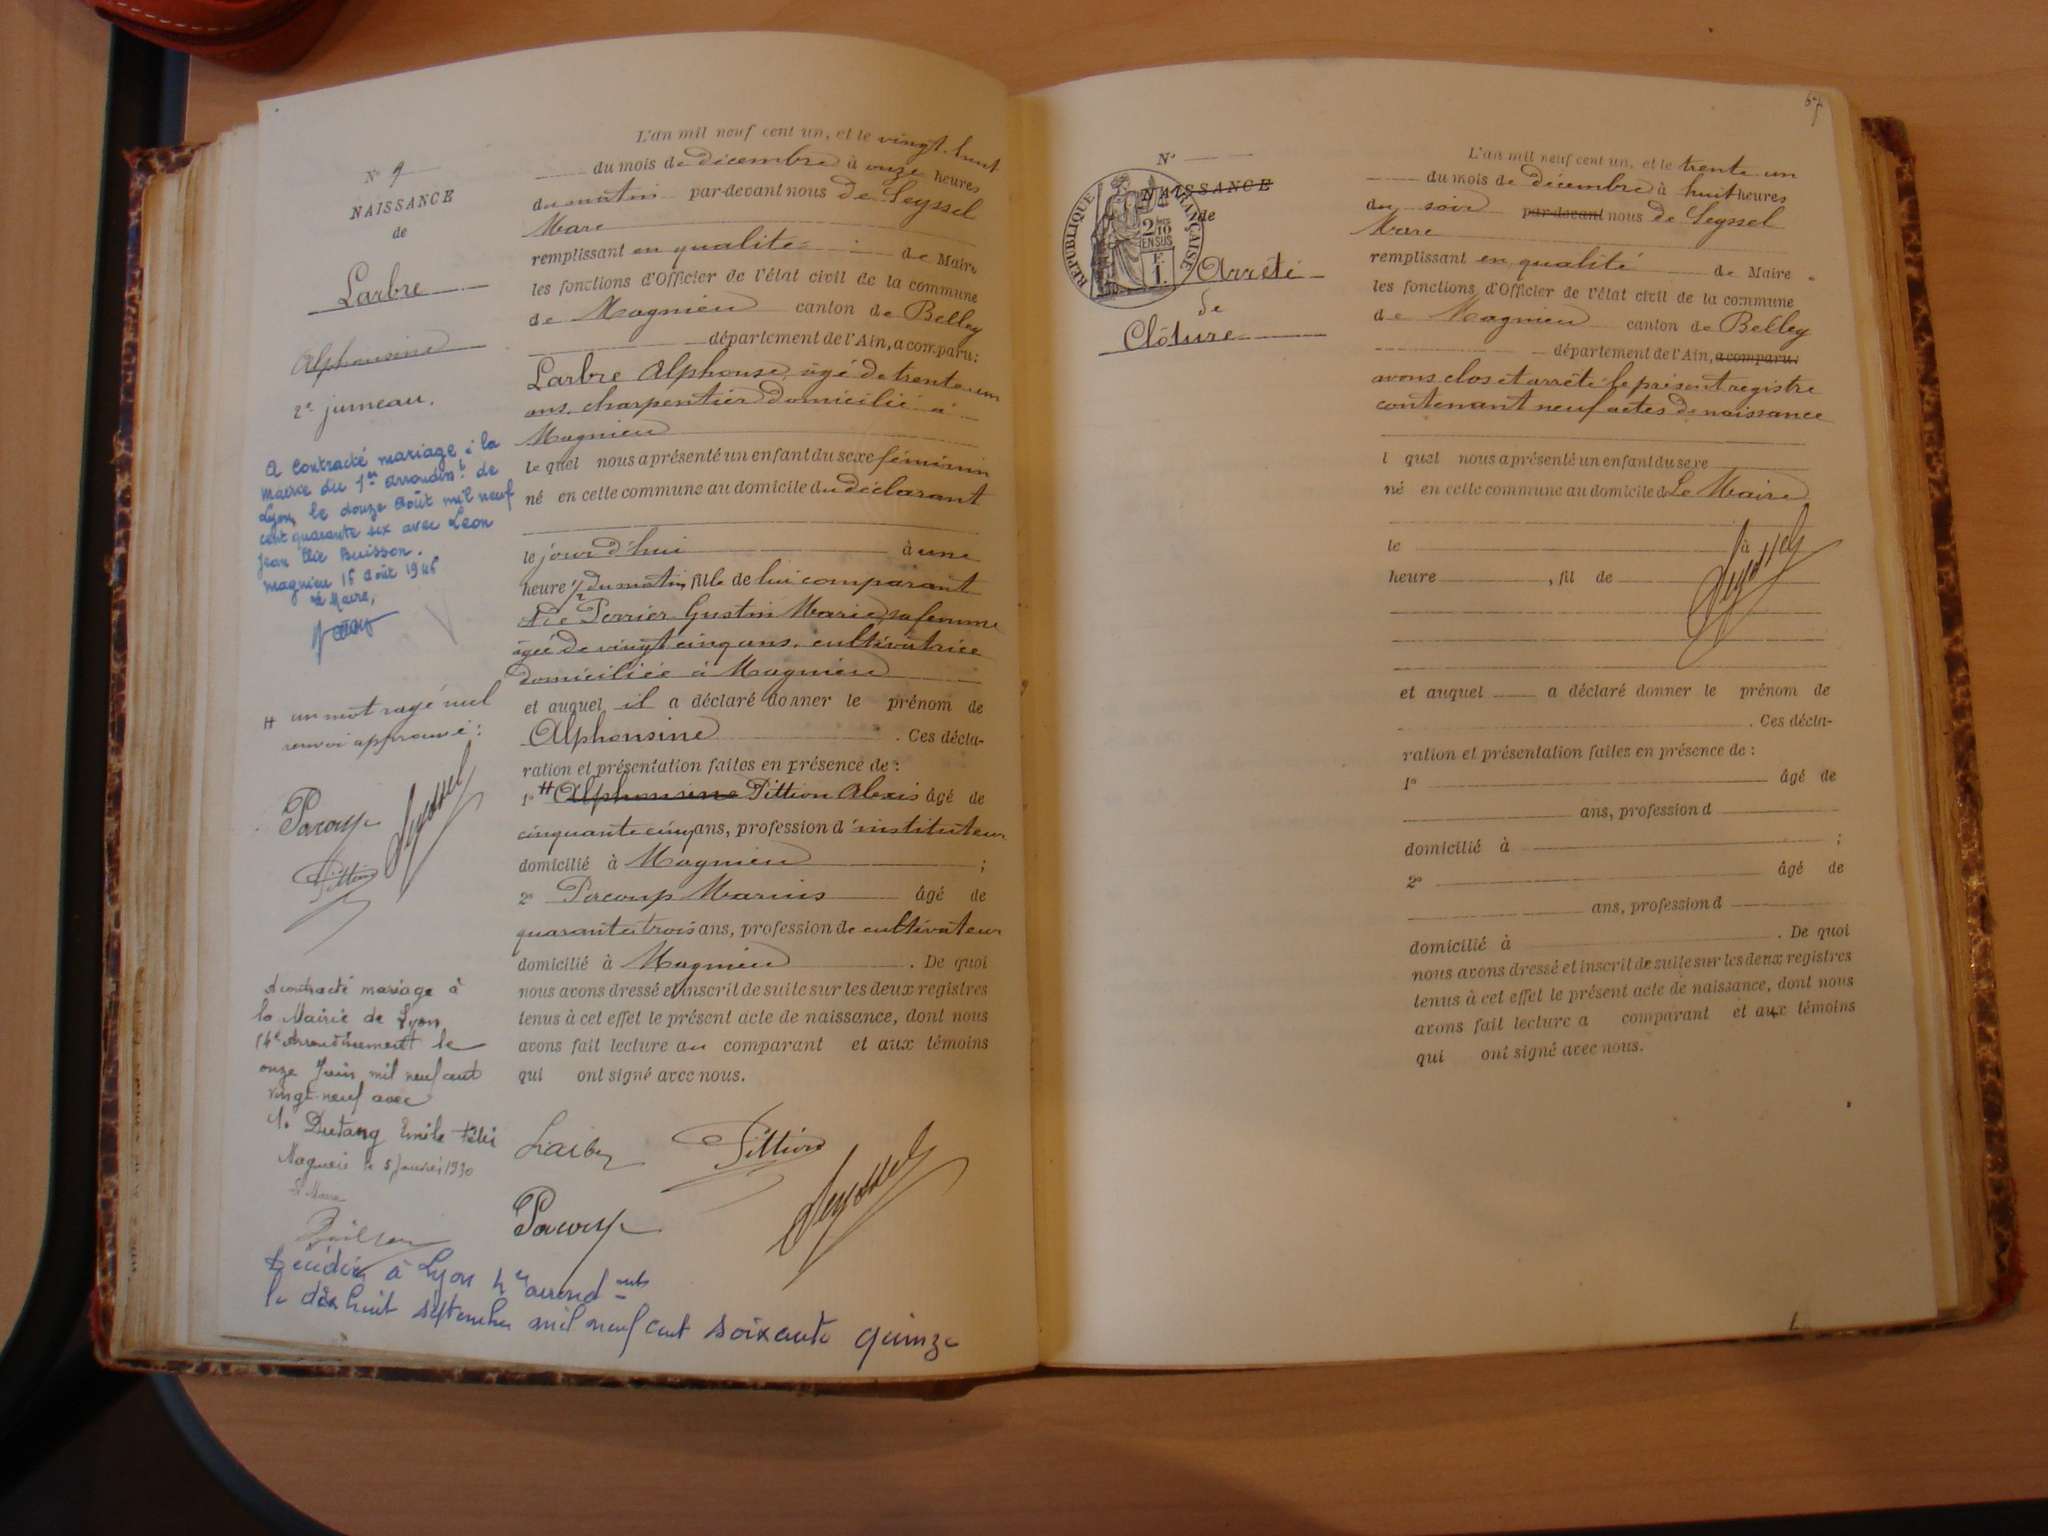 N° 9
NAISSANCE
de
Larbre
Alphonsine
2e jumeau.
A Contracté mariage à la
mairie du 1er arrondisst de
Lyon, le douze Août mil neuf
cent quarante six avec Léon
Jean Elie Buisson.
Magnieu 16 Août 1946
Le Maire,
H un mot rayé nul
renvoi approuvé :
Pacoup
Seyssel
Pittion
A contracté mariage à
la Mairie de Lyon
Arrondissement le
onze Juin mil neuf cent
vingt-neuf avec
M. Dutang Emile Félix
Magnieu le 5 Janvier 1930
Le Maire
L'an mil neuf cent un, et le vingt-huit
du mois de décembre à onze heures
du matin par-devant nous De Seyssel
Marc
remplissant en qualité de Maire
les fonctions d'Officier de l'état civil de la commune
de Magnieu canton de Belley
département de l'Ain, a comparu :
Larbre Alphonse, âgé de trente-un
ans, charpentier domicilié à
Magnieu
lequel nous a présenté un enfant du sexe féminin
né en cette commune au domicile du déclarant
le jour d'hui à une
heure 1/2 du matin, fille de lui comparant
et de Perrier Gustin Marie, sa femme
âgée de vingt cinq ans, cultivatrice
domiciliée à Magnieu
et auquel il a déclaré donner le prénom de
Alphonsine . Ces décla-
ration et présentation faites en présence de :
1° H Alphonsine Pittion Alexis âgé de
cinquante cinq ans, profession d'instituteur
domicilié à Magnieu ;
2° Pacoup Marius âgé de
quarante trois ans, profession de cultivateur
domicilié à Magnieu . De quoi
nous avons dressé et inscrit de suite sur les deux registres
tenus à cet effet le présent acte de naissance, dont nous
avons fait lecture au comparant et aux témoins
qui ont signé avec nous.
Larbre Pittion
Pacoup Seyssel
Décédée à Lyon 4e arrondts
le dix huit septembre mil neuf cent soixante quinze
67
N°
NAISSANCE
de
RÉPUBLIQUE FRANÇAISE
2/10
EN SUS
F.
1.
Arrêté
de
Clôture
L'an mil neuf cent un, et le trente un
du mois de décembre à huit heures
du soir par-devant nous de Seyssel
Marc
remplissant en qualité de Maire
les fonctions d'Officier de l'état civil de la commune
de Magnieu canton de Belley
département de l'Ain, a comparu :
avons clos et arrêté le présent registre
contenant neuf actes de naissance
l quel nous a présenté un enfant du sexe
né en cette commune au domicile d Le Maire
le à
Seyssel
heure , fil de
et auquel a déclaré donner le prénom de
. Ces décla-
ration et présentation faites en présence de :
1° âgé de
ans, profession d
domicilié à ;
2° âgé de
ans, profession d
domicilié à . De quoi
nous avons dressé et inscrit de suite sur les deux registres
tenus à cet effet le présent acte de naissance, dont nous
avons fait lecture a comparant et aux témoins
qui ont signé avec nous.